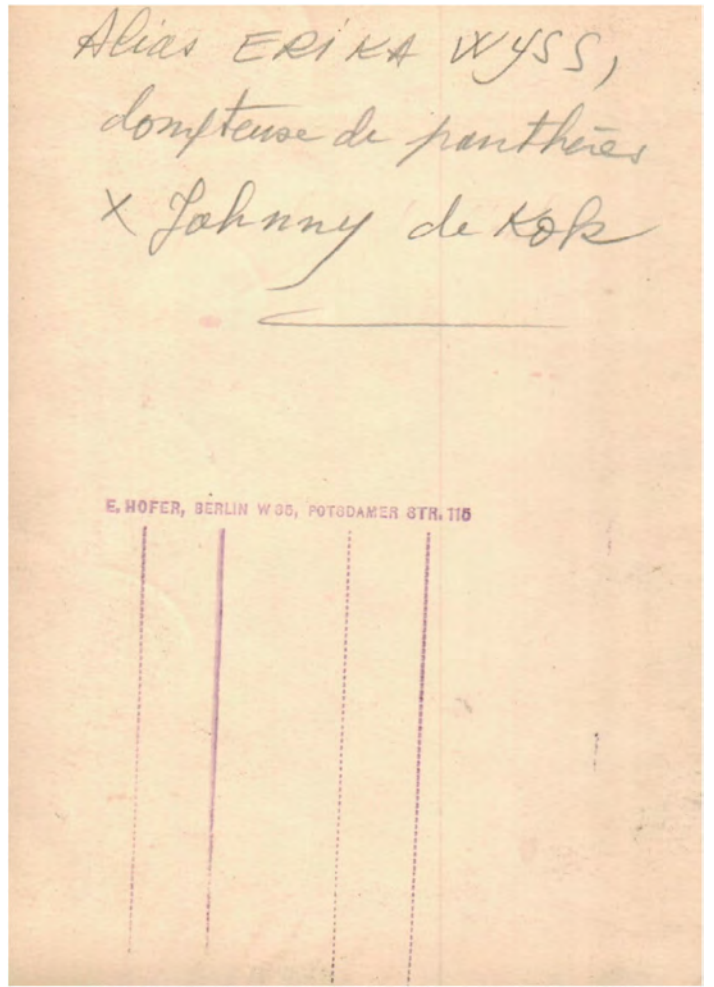 Alias ERIKA WYSS,
dompteuse de panthères
x Johnny de Kok
E. HOFER, BERLIN W 35, POTSDAMER STR. 115